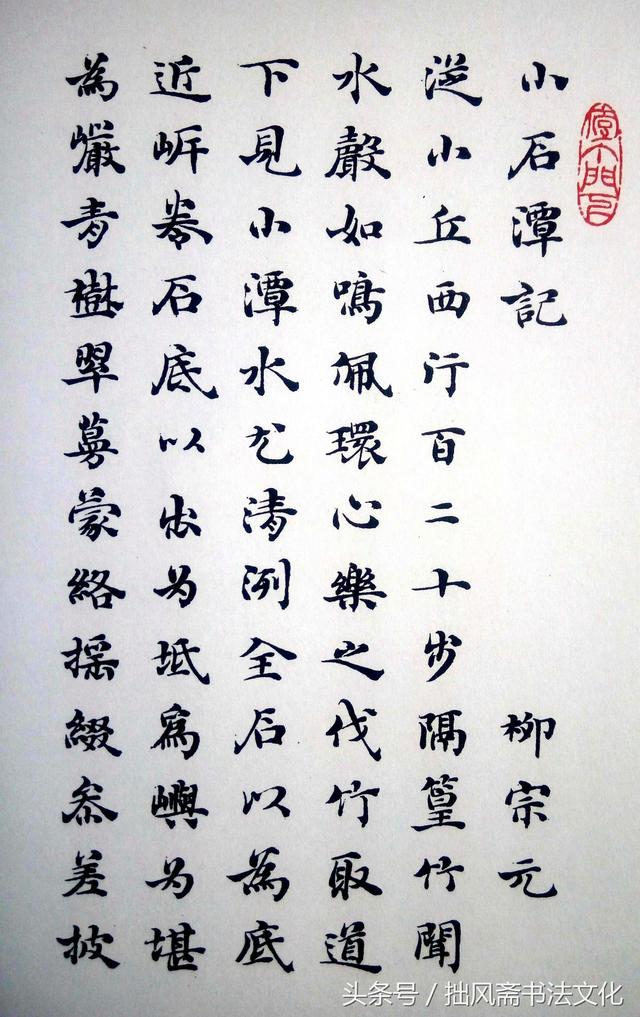 小石潭記 柳宗元
從小丘西行百二十步隔篁竹聞
水聲如鳴佩環心樂之伐竹取道
下見小潭水尤清洌全石以為底
近岸卷石底以出为坻為嶼为堪
為巖青樹翠蔓蒙絡搖綴參差披
头条号/拙风斋书法文化